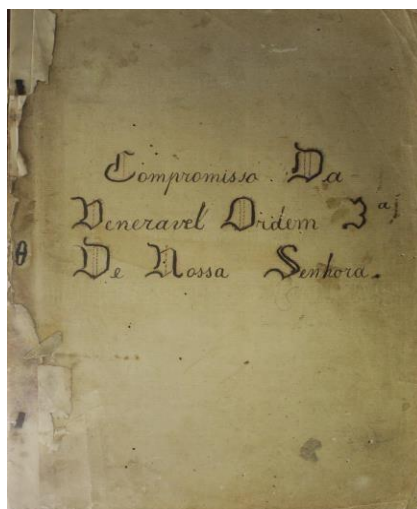 Compromisso Da
Veneravel Ordem 3ª
De Nossa Senhora.